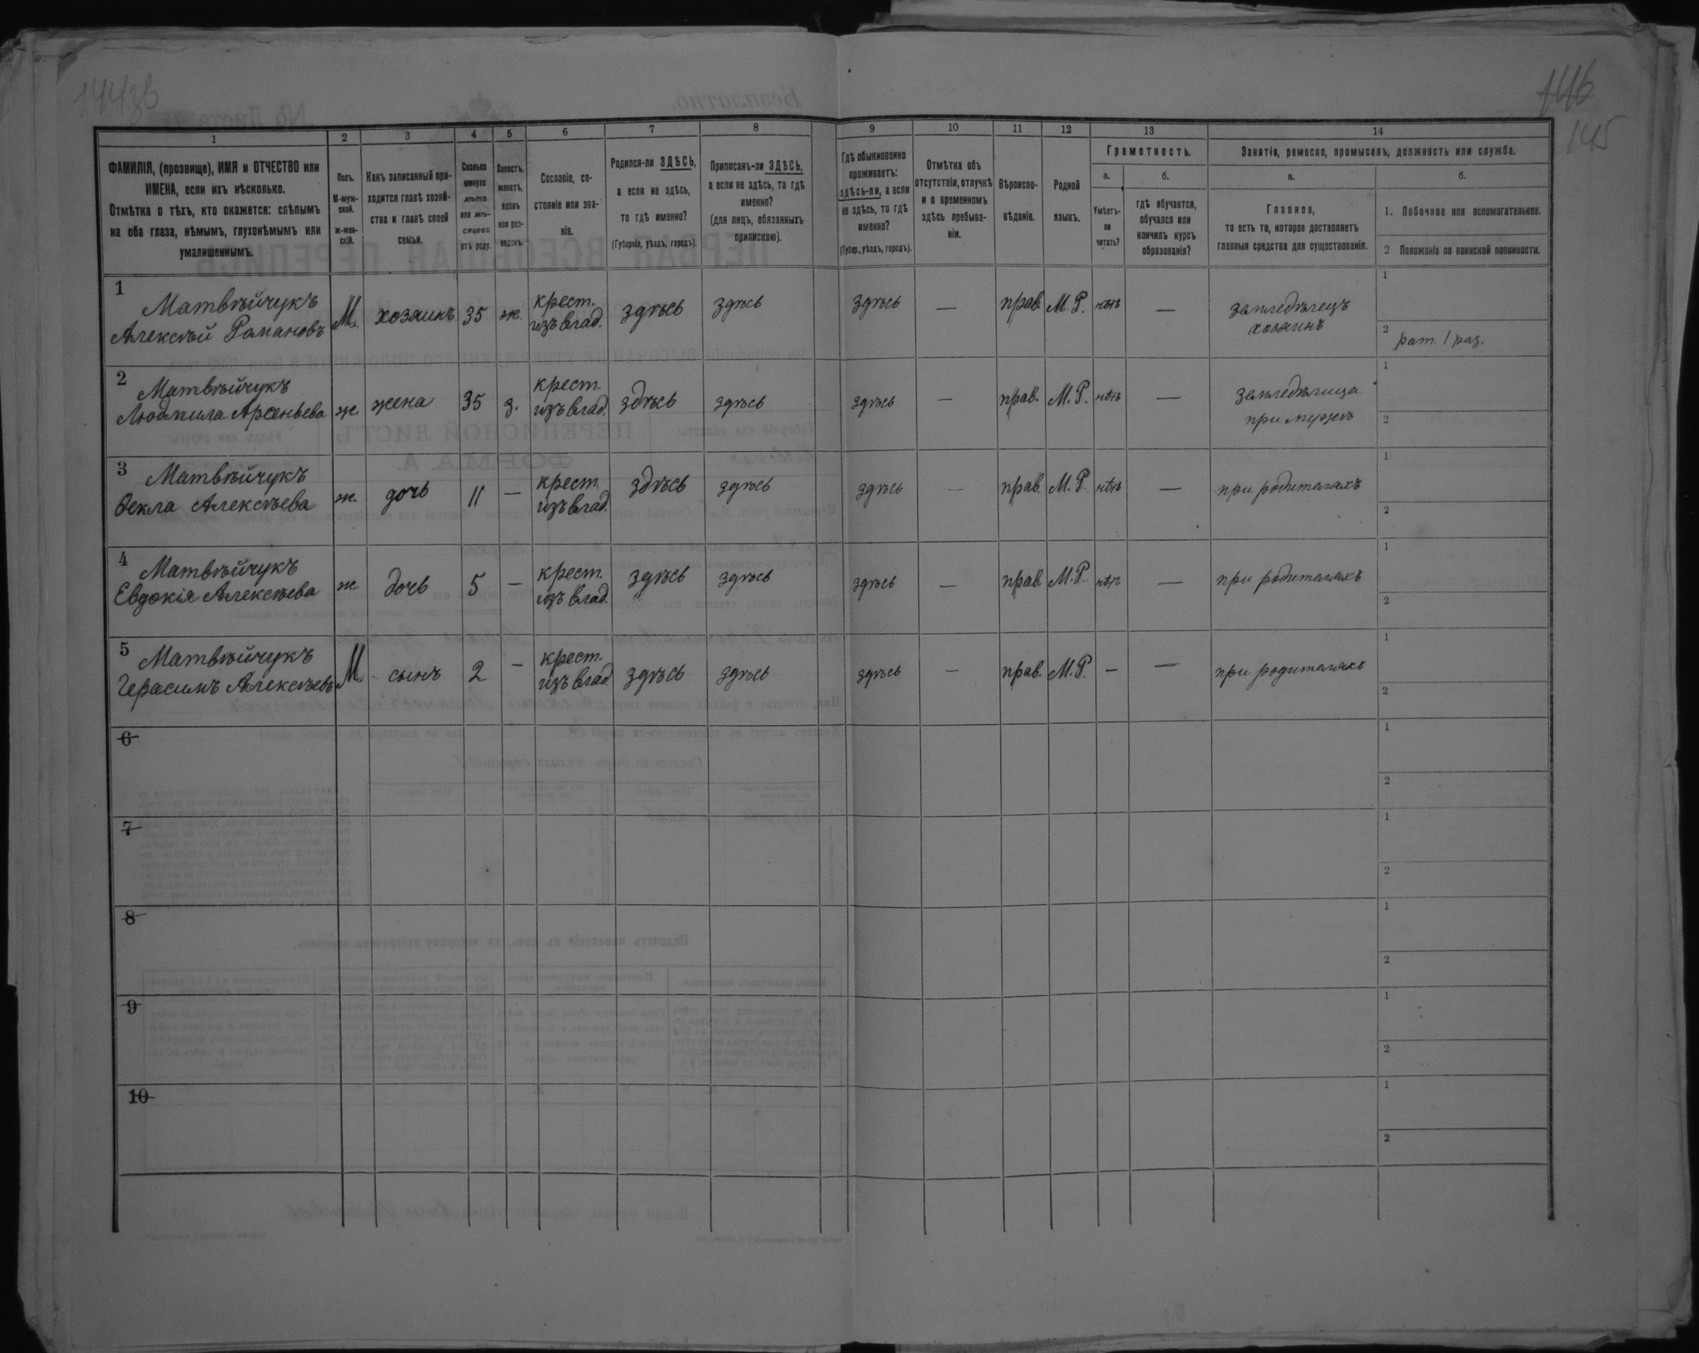 146
145
1
2
3
4
5
6
7
8
9
10
11
12
13
14
ФАМИЛІЯ, (прозвище), ИМЯ и ОТЧЕСТВО или
ИМЕНА, если ихъ нѣсколько.
Отмѣтка о тѣхъ, кто окажется: слѣпымъ
на оба глаза, нѣмымъ, глухонѣмымъ или
умалишеннымъ.
Полъ.
М-муж-
ской.
ж-жен-
скій.
Какъ записанный при-
ходится главѣ хозяй-
ства и главѣ своей
семьи.
Сколько
минуло
лѣтъ
или мѣ-
сяцевъ
отъ роду.
Холостъ,
женатъ,
вдовъ
или раз-
веденъ.
Сословіе, со-
стояніе или зва-
ніе.
Родился-ли ЗДѢСЬ,
а если не здѣсь,
то гдѣ именно?
(Губернія, уѣздъ, городъ).
Приписанъ-ли ЗДѢСЬ,
а если не здѣсь, то гдѣ
именно?
(для лицъ, обязанныхъ
припискою).
Гдѣ обыкновенно
проживаетъ:
здѣсь-ли, а если
не здѣсь, то гдѣ
именно?
(Губер., уѣздъ, городъ).
Отмѣтка объ
отсутствіи, отлучкѣ
и о временномъ
здѣсь пребыва-
ніи.
Вѣроиспо-
вѣданіе.
Родной
языкъ.
Грамотность.
а.
Умѣетъ-
ли
читать?
б.
гдѣ обучается,
обучался или
кончилъ курсъ
образованія?
Занятіе, ремесло, промыселъ, должность или служба.
а.
Главное,
то есть то, которое доставляетъ
главныя средства для существованія.
б.
1. Побочное или вспомогательное.
2 Положеніе по воинской повинности.
1
Матвѣйчукъ
Алексѣй Романовъ
М. хозяинъ 35 ж. крест. изъ влад. здѣсь здѣсь здѣсь — прав. М.Р. нѣтъ — земледѣлецъ
хозяинъ
1
2 рат. 1 раз.
2
Матвѣйчукъ
Людмила Арсеньева
ж. жена 35 з. крест. изъ влад. здѣсь здѣсь здѣсь — прав. М.Р. нѣтъ — земледѣлица
при мужѣ
1
2
3
Матвѣйчукъ
Ѳекла Алексѣева
ж. дочь 11 — крест. изъ влад. здѣсь здѣсь здѣсь — прав. М.Р. нѣтъ — при родителяхъ
1
2
4
Матвѣйчукъ
Евдокія Алексѣева
ж дочь 5 — крест. изъ влад. здѣсь здѣсь здѣсь — прав. М.Р. нѣтъ — при родителяхъ
1
2
5
Матвѣйчукъ
Герасимъ Алексѣевъ
М. сынъ 2 — крест. изъ влад. здѣсь здѣсь здѣсь — прав. М.Р. — — при родителяхъ
1
2
6
1
2
7
1
2
8
1
2
9
1
2
10
1
2